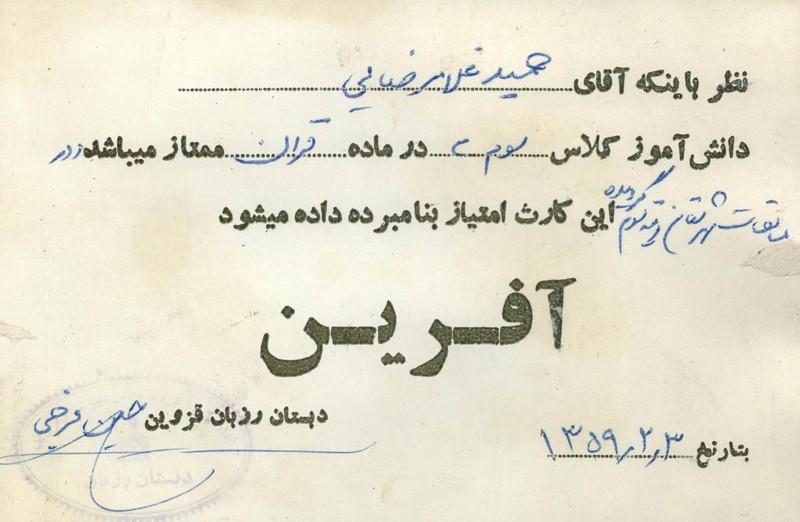 نظر باینکه آقای حمید غلامرضایی
دانش آموز کلاس سوم در ماده قرآن ممتاز میباشد و در
مسابقات شهرستان رتبه سوم گردیده این کارت امتیاز بنامبرده داده میشود
آفرین
دبستان رزبان قزوین
بتاریخ ۱۳۵۹٫۲٫۳
دبستان رزبان